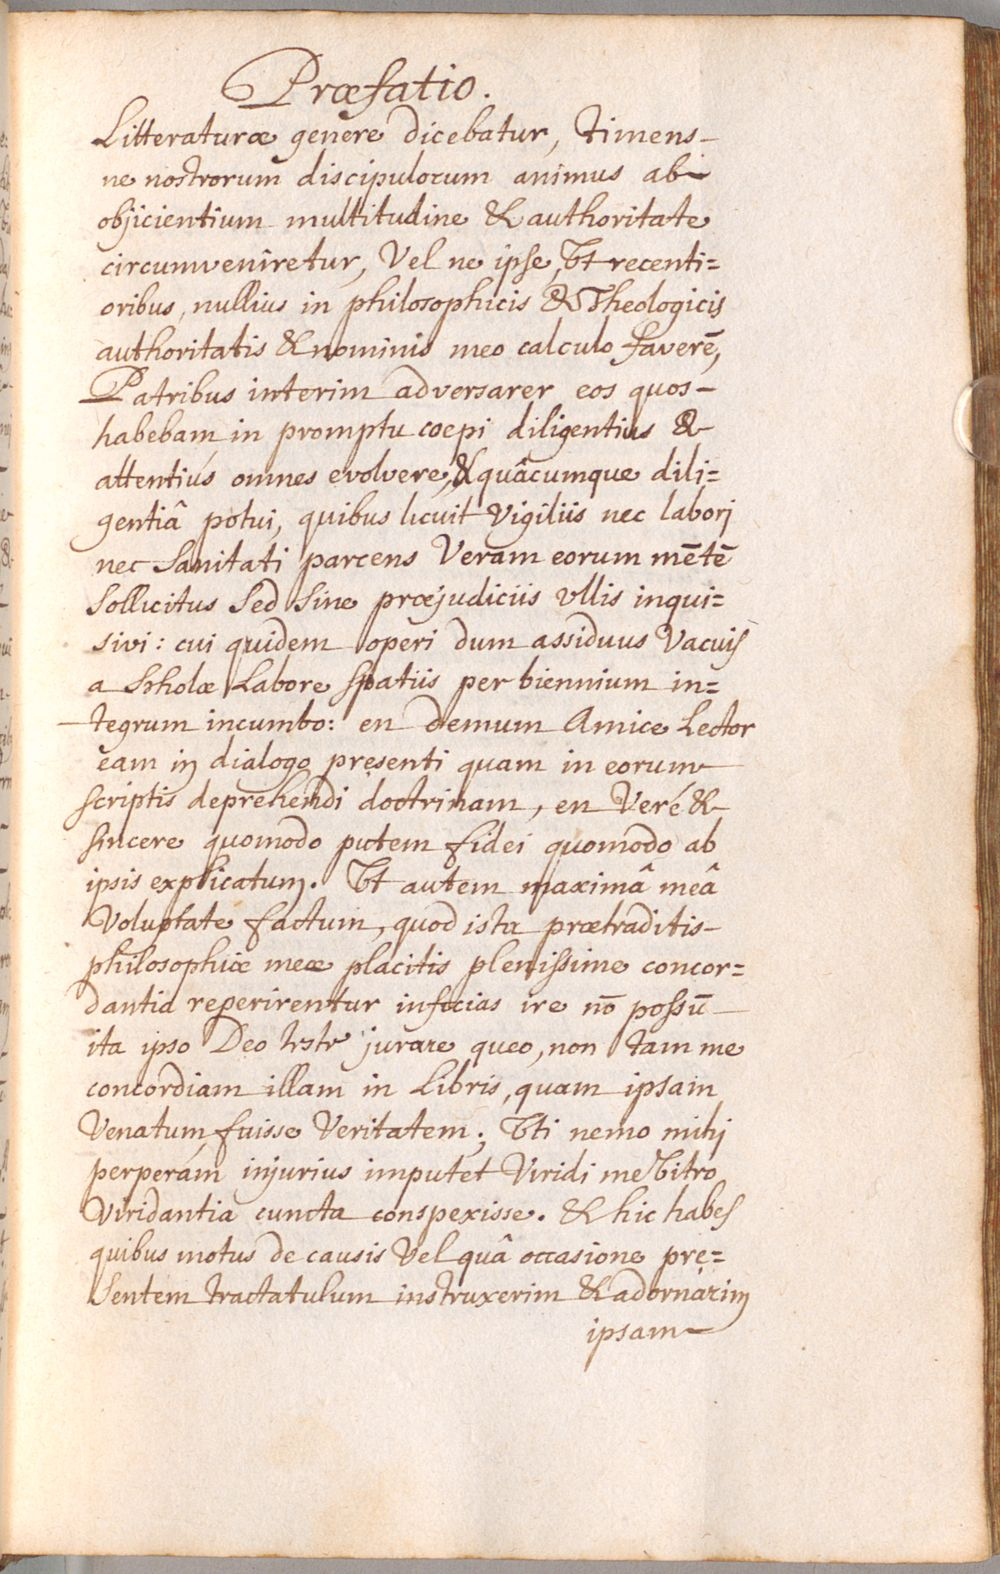 Præfatio.
Litteraturæ genere dicebatur, timens
ne nostrorum discipulorum animus ab
objicientium multitudine & authoritate
circumveniretur, Vel ne ipse Vt recenti=
oribus, nullius in philosophicis & Theologicis
authoritatis & nominis meo calculo faverē,
Patribus interim adversarer eos quos
habebam in promptu coepi diligentius &
attentius omnes evolvere, & quâcumque dili=
gentiâ potui, quibus licuit Vigiliis nec labori
nec Sanitati parcens Veram eorum mētē
Sollicitus Sed Sine præjudiciis Vllis inqui=
sivi: cui quidem operi dum assiduus Vacuis
a Scholæ Labore Spatiis per biennium in=
tegrum incumbo: en demum Amice Lector
eam in dialogo pręsenti quam in eorum
scriptis deprehendi doctrinam, en Veré &
sincere quomodo putem fidei quomodo ab
ipsis explicatum. Vt autem maximâ meâ
Voluptate factum, quod ista prætraditis
philosophiæ meæ placitis plenissime concor=
dantia reperirentur inficias ire nō possū
ita ipso Deo teste jurare queo, non tam me
concordiam illam in Libris, quam ipsam
Venatum fuisse Veritatem; Vti nemo mihi
perperám injurius imputet Viridi me Vitro
Viridantia cuncta conspexisse. & hic habes
quibus motus de causis Vel quâ occasione prę=
Sentem tractatulum instruxerim & adornárim
ipsam